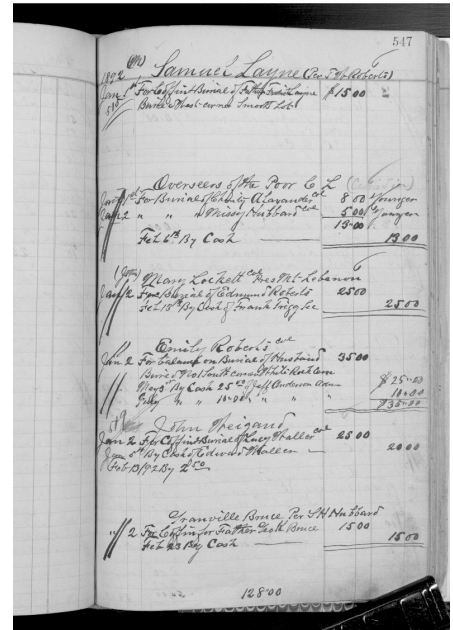 547
(M) Samuel Layne (Per J.W. Roberts)
1892
Jan 1st For Coffin & Burial of Layne $15.00
Buried West corner Smooth Lot
Overseers of the Poor C L
Jany 1st For Burial of Charity Alexander col 8 00 Younger
Jan 2 " " " Missy Hubbard col 5 00 Younger
13.00
Feb 6th By Cash 13 00
(John) Mary Lockett col Pres Mt. Lebanon
Jany 2 For Burial of Edmund Roberts 25 00
Feb 13th By Cash of Frank Trigg Sec 25 00
Emily Roberts col
Jan 2 For balance on Burial of Husband 35 00
Buried South corner White Rock Cem
May 3rd By Cash 25.00 of Jeff Anderson Adm $25.00
" " 10.00 " " " 10.00
$35.00
519
John Weigand
Jan 2 For Coffin & Burial of Lucy Waller col 25 00
Jan 5th By Cash of Edward Waller 20 00
Feb 13/92 By 2.50
Granville Bruce Per S H Hubbard
" 2 For Coffin for Father Bruce 15 00
Feb 23 By Cash 15 00
128.00